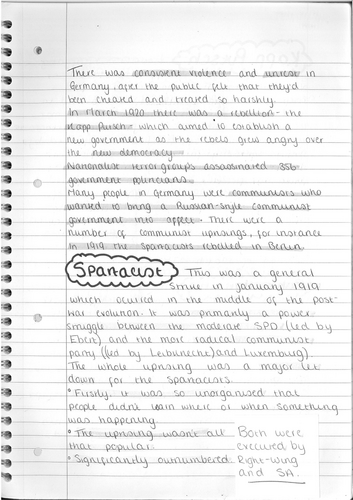 There was consistent violence and unrest in
Germany, after the public felt that they'd
been cheated and treated so harshly.
In March 1920 there was a rebellion - the
Kapp Putsch - which aimed to establish a
new government as the rebels grew angry over
the new democracy.
Nationalist terror groups assassinated 356
government politicians.
Many people in Germany were communists who
wanted to bring a Russian-style communist
government into affect. There were a
number of communist uprisings, for instance
in 1919 the Spartacists rebelled in Berlin.
Spartacist This was a general
strike in January 1919
which ocurred in the middle of the post-
war evolution. It was primarily a power
struggle between the moderate SPD (led by
Ebert) and the more radical communist
party (led by and Luxemburg).
The whole uprising was a major let
down for the spartacists.
• Firstly, it was so unorganised that
people didn't where or when something
was happening
• The uprising wasn't all
that popular.
• Significantly outnumbered.
Both were
executed by
Right-wing
and SA.